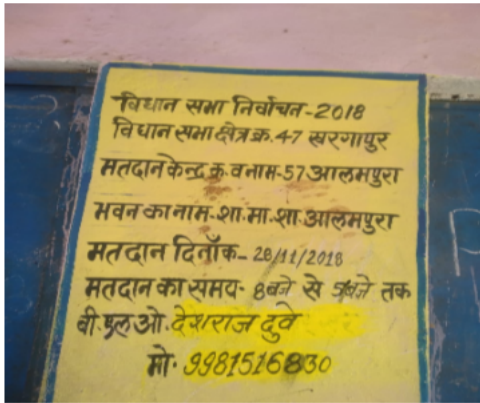 विधान सभा निर्वाचन-2018
विधान सभा क्षेत्र क्र. 47 खरगापुर
मतदान केन्द्र क्र. व नाम-57 आलमपुरा
भवन का नाम-शा.मा.शा.आलमपुरा
मतदान दिनाँक-28/11/2018
मतदान का समय- 8बजे से 5बजे तक
बी.एल.ओ. देशराज दुवे
मो. 9981516830